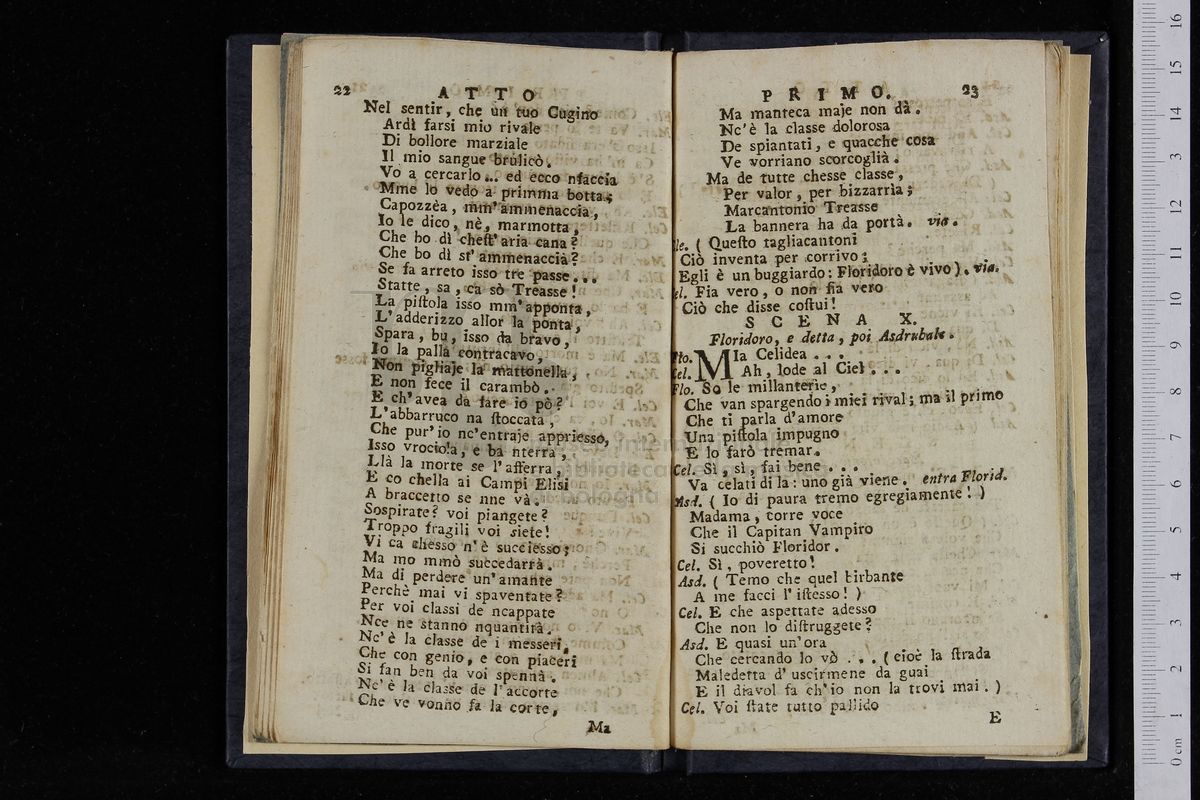 22 ATTO
Nel sentir, che un tuo Cugino
Ardì farsi mio rivale
Di bollore marziale
Il mio sangue brulicò.
Vo a cercarlo... ed ecco nfaccia
Mme lo vedo a primma botta;
Capozzèa, mm'ammenaccia,
Io le dico, nè, marmotta,
Che bo dì chest'aria cana?
Che bo dì st'ammenaccià?
Se fa arreto isso tre passe...
Statte, sa, ca sò Treasse!
La pistola isso mm'apponta,
L'adderizzo allor la ponta,
Spara, bu, isso da bravo,
Io la palla contracavo,
Non pigliaje la mattonella,
E non fece il carambò.
E ch'avea da fare io pò?
L'abbarruco na stoccata,
Che pur'io nc'entraje appriesso,
Isso vrociola, e ba nterra,
Llà la morte se l'afferra,
E co chella ai Campi Elisi
A braccetto se nne và.
Sospirate? voi piangete?
Troppo fragili voi siete!
Vi ca chesso n'è succiesso;
Ma mo mmò succedarrà.
Ma di perdere un'amante
Perchè mai vi spaventate?
Per voi classi de ncappate
Nce ne stanno nquantità.
Nc'è la classe de i messeri,
Che con genio, e con piaceri
Si fan ben da voi spennà.
Nc'è la classe de l'accorte
Che ve vonno fa la corte,
Ma
PRIMO. 23
Ma manteca maje non dà.
Nc'è la classe dolorosa
De spiantati, e quacche cosa
Ve vorriano scorcoglià.
Ma de tutte chesse classe,
Per valor, per bizzarria;
Marcantonio Treasse
La bannera ha da portà. via.
le. ( Questo tagliacantoni
Ciò inventa per corrivo;
Egli è un buggiardo: Floridoro è vivo). via.
el. Fia vero, o non fia vero
Ciò che disse costui!
SCENA X.
Floridoro, e detta, poi Asdrubale.
Flo. MIa Celidea...
Cel. Ah, lode al Ciel...
Flo. So le millanterie,
Che van spargendo i miei rival; ma il primo
Che ti parla d'amore
Una pistola impugno
E lo farò tremar.
Cel. Sì, sì, fai bene...
Va celati di la: uno già viene. entra Florid.
Asd. ( Io di paura tremo egregiamente! )
Madama, corre voce
Che il Capitan Vampiro
Si succhiò Floridor.
Cel. Sì, poveretto!
Asd. ( Temo che quel birbante
A me facci l'istesso! )
Cel. E che aspettate adesso
Che non lo distruggete?
Asd. E quasi un'ora
Che cercando lo vò... ( cioè la strada
Maledetta d'uscirmene da guai
E il diavol fa ch'io non la trovi mai. )
Cel. Voi state tutto pallido
E